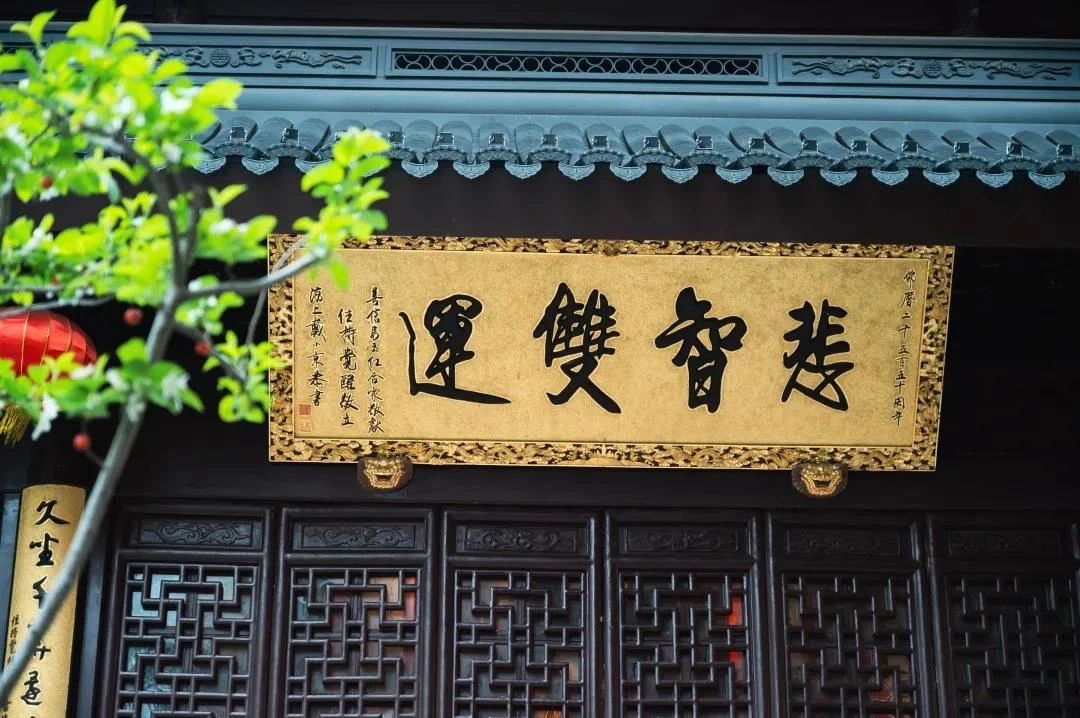 佛曆二千五百五十周年
悲智雙運
善信合家敬獻
住持覺醒敬立
滬上戴小京恭書
久坐千
住持覺